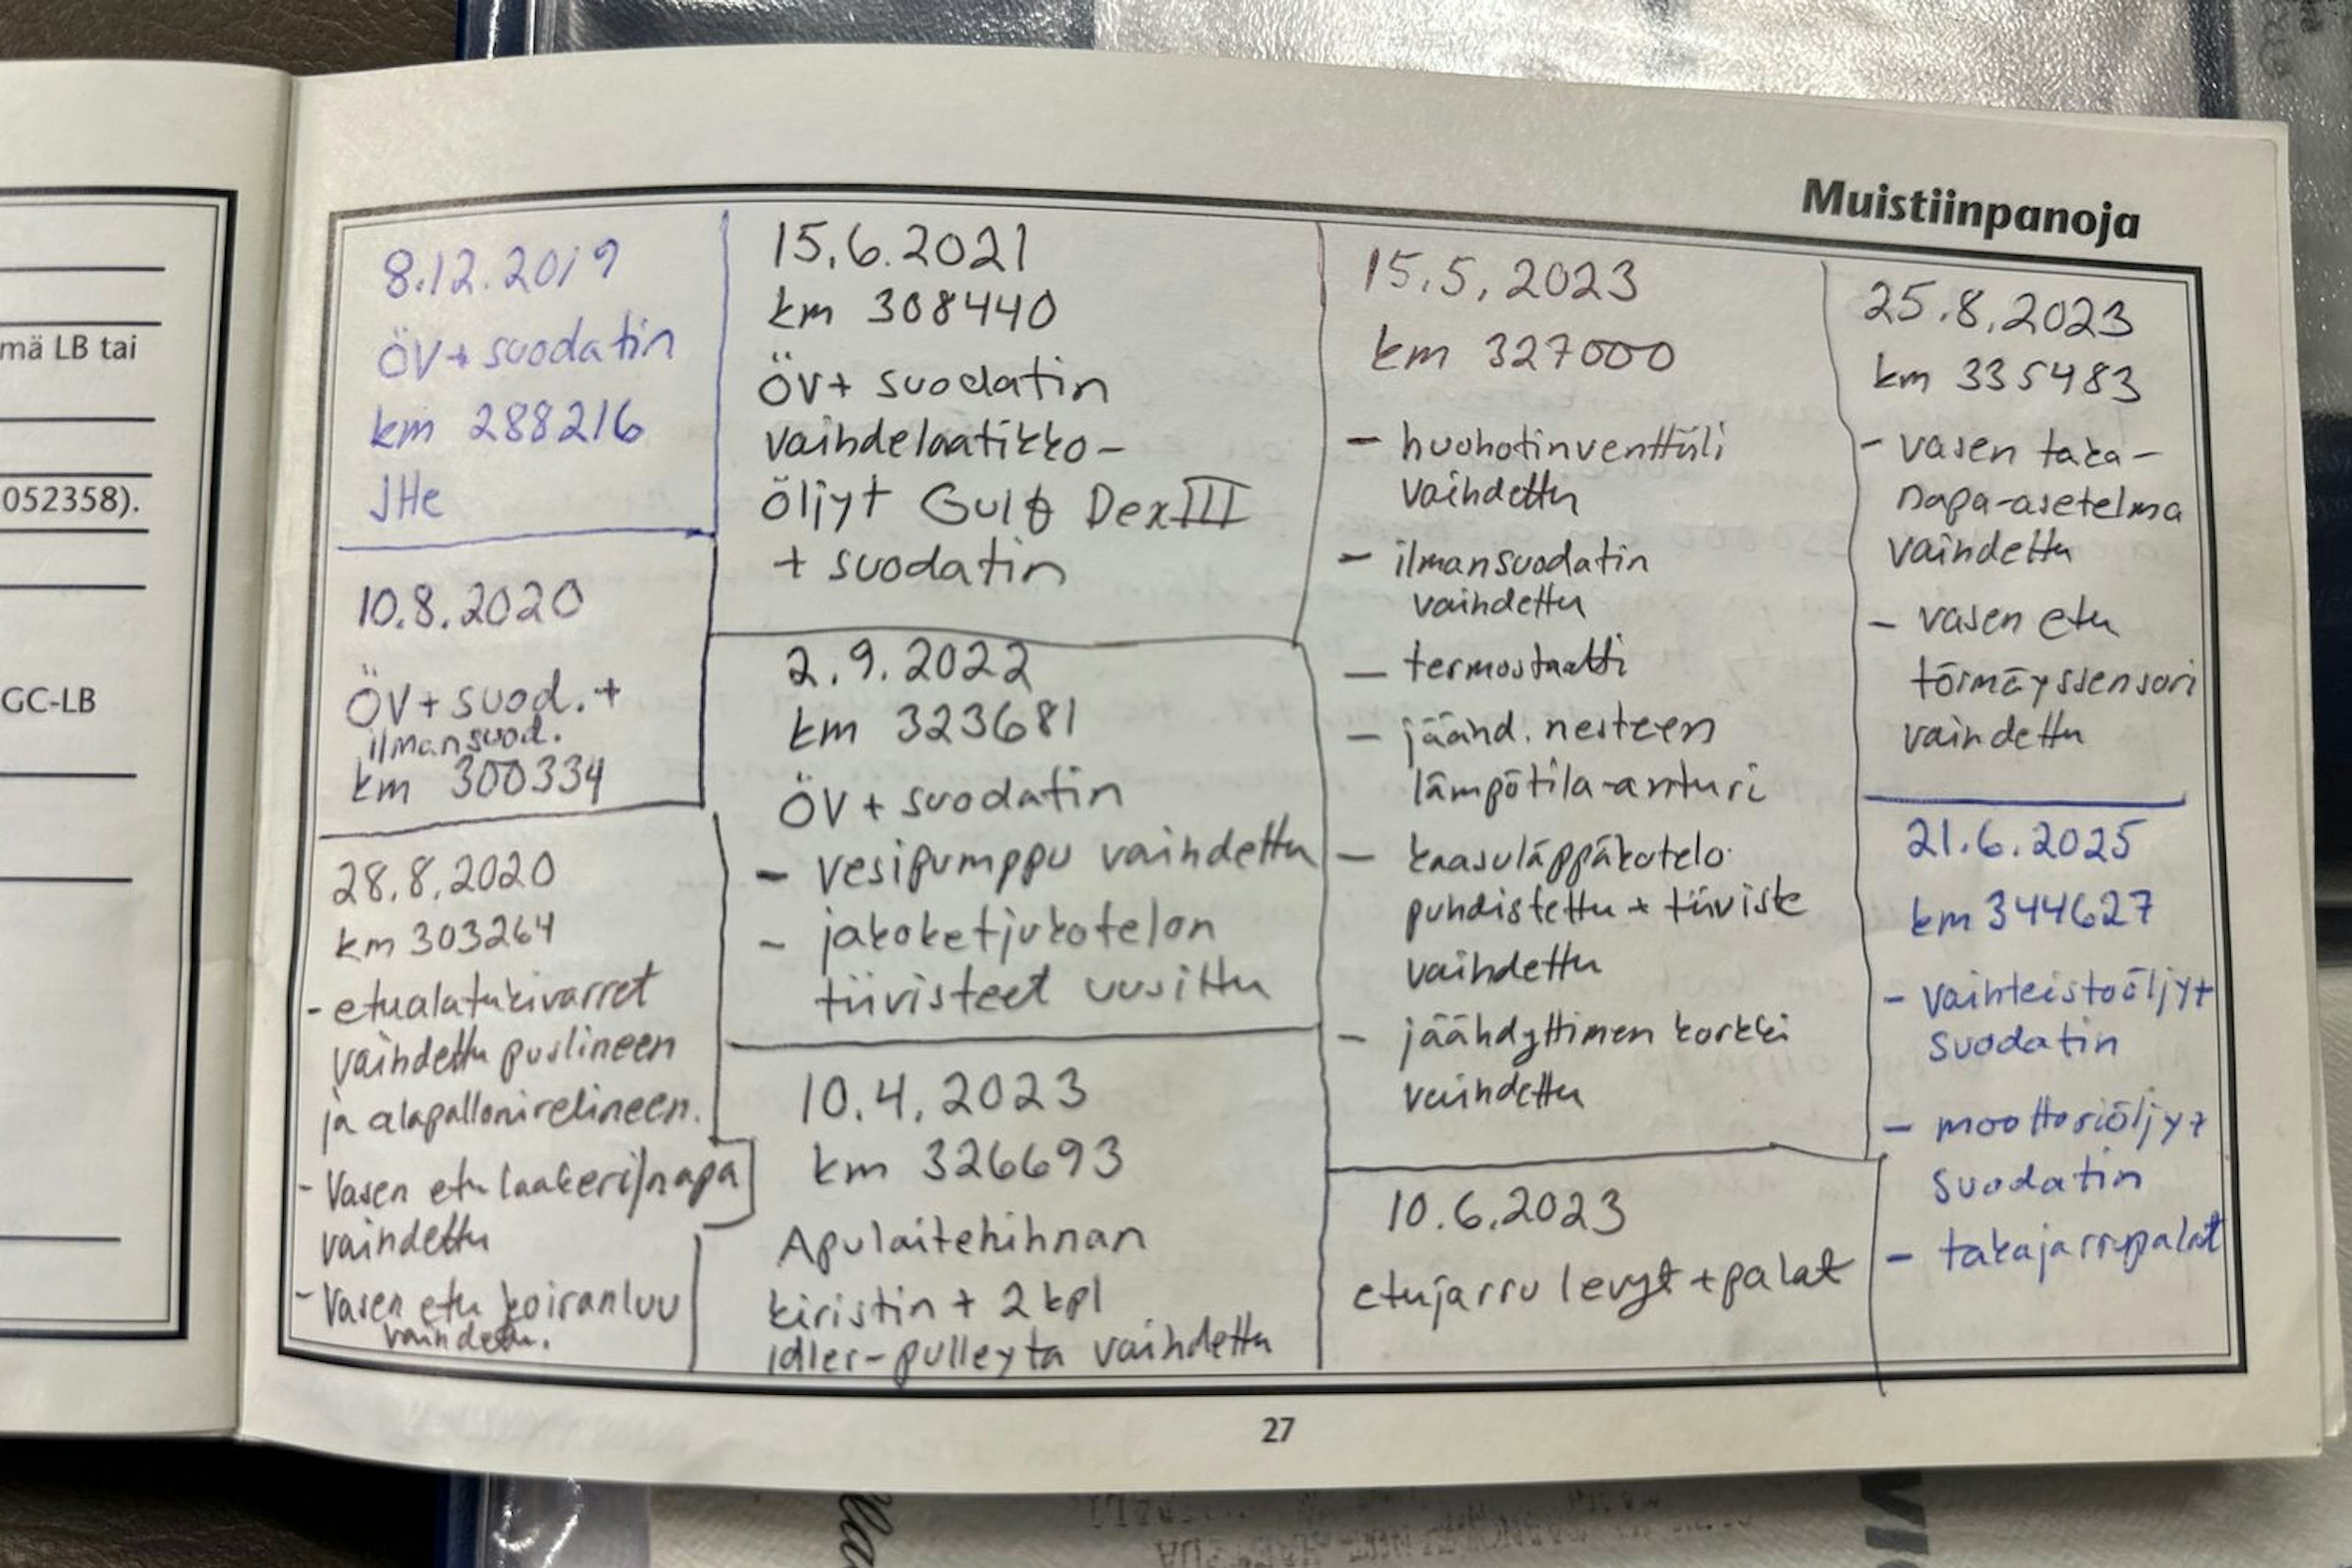 mä LB tai
052358).
GC-LB
Muistiinpanoja
8.12.2019
ÖV+suodatin
km 288216
JHe
10.8.2020
ÖV+suod.+
ilmansuod.
km 300334
28.8.2020
km 303264
- etualatukivarret
vaihdettu puslineen
ja alapallonivelineen.
- Vasen etu laakeri/napa
vaihdettu
- Vasen etu koiranluu
vaihdettu.
15.6.2021
km 308440
ÖV+ suodatin
vaihdelaatikko-
öljyt Gulf Dex III
+ suodatin
2.9.2022
km 323681
ÖV+suodatin
- vesipumppu vaihdettu
- jakoketjukotelon
tiivisteet uusittu
10.4.2023
km 326693
Apulaitehihnan
kiristin + 2 kpl
idler-pulleyta vaihdettu
15.5.2023
km 327000
- huohotinventtiili
vaihdettu
- ilmansuodatin
vaihdettu
- termostaatti
- jäähd. nesteen
lämpötila-anturi
- kaasuläppäkotelo
puhdistettu + tiiviste
vaihdettu
- jäähdyttimen korkki
vaihdettu
10.6.2023
etujarru levyt+palat
25.8.2023
km 335483
- vasen taka-
napa-asetelma
vaihdettu
- vasen etu
törmäyssensori
vaihdettu
21.6.2025
km 344627
- vaihteistoöljyt
suodatin
- moottoriöljyt
suodatin
- takajarrupalat
27